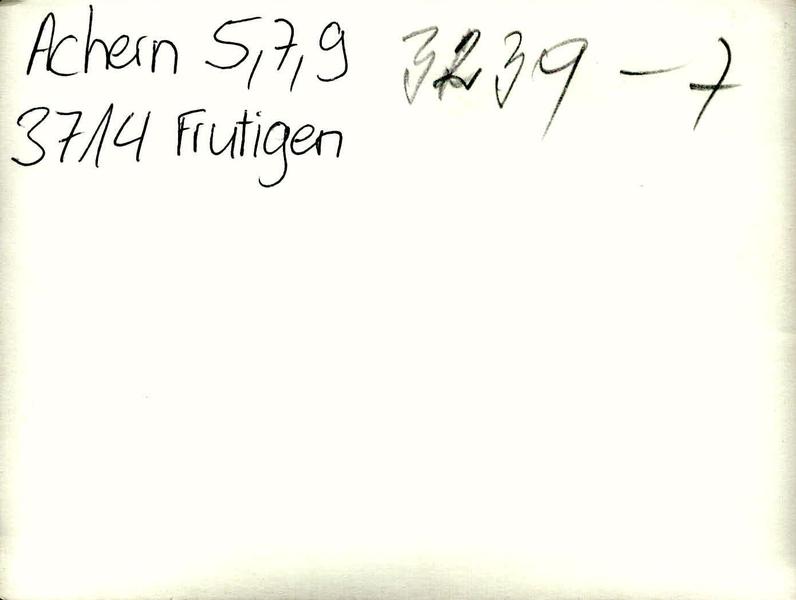 Achern 5,7,9 3239 - 7
3714 Frutigen